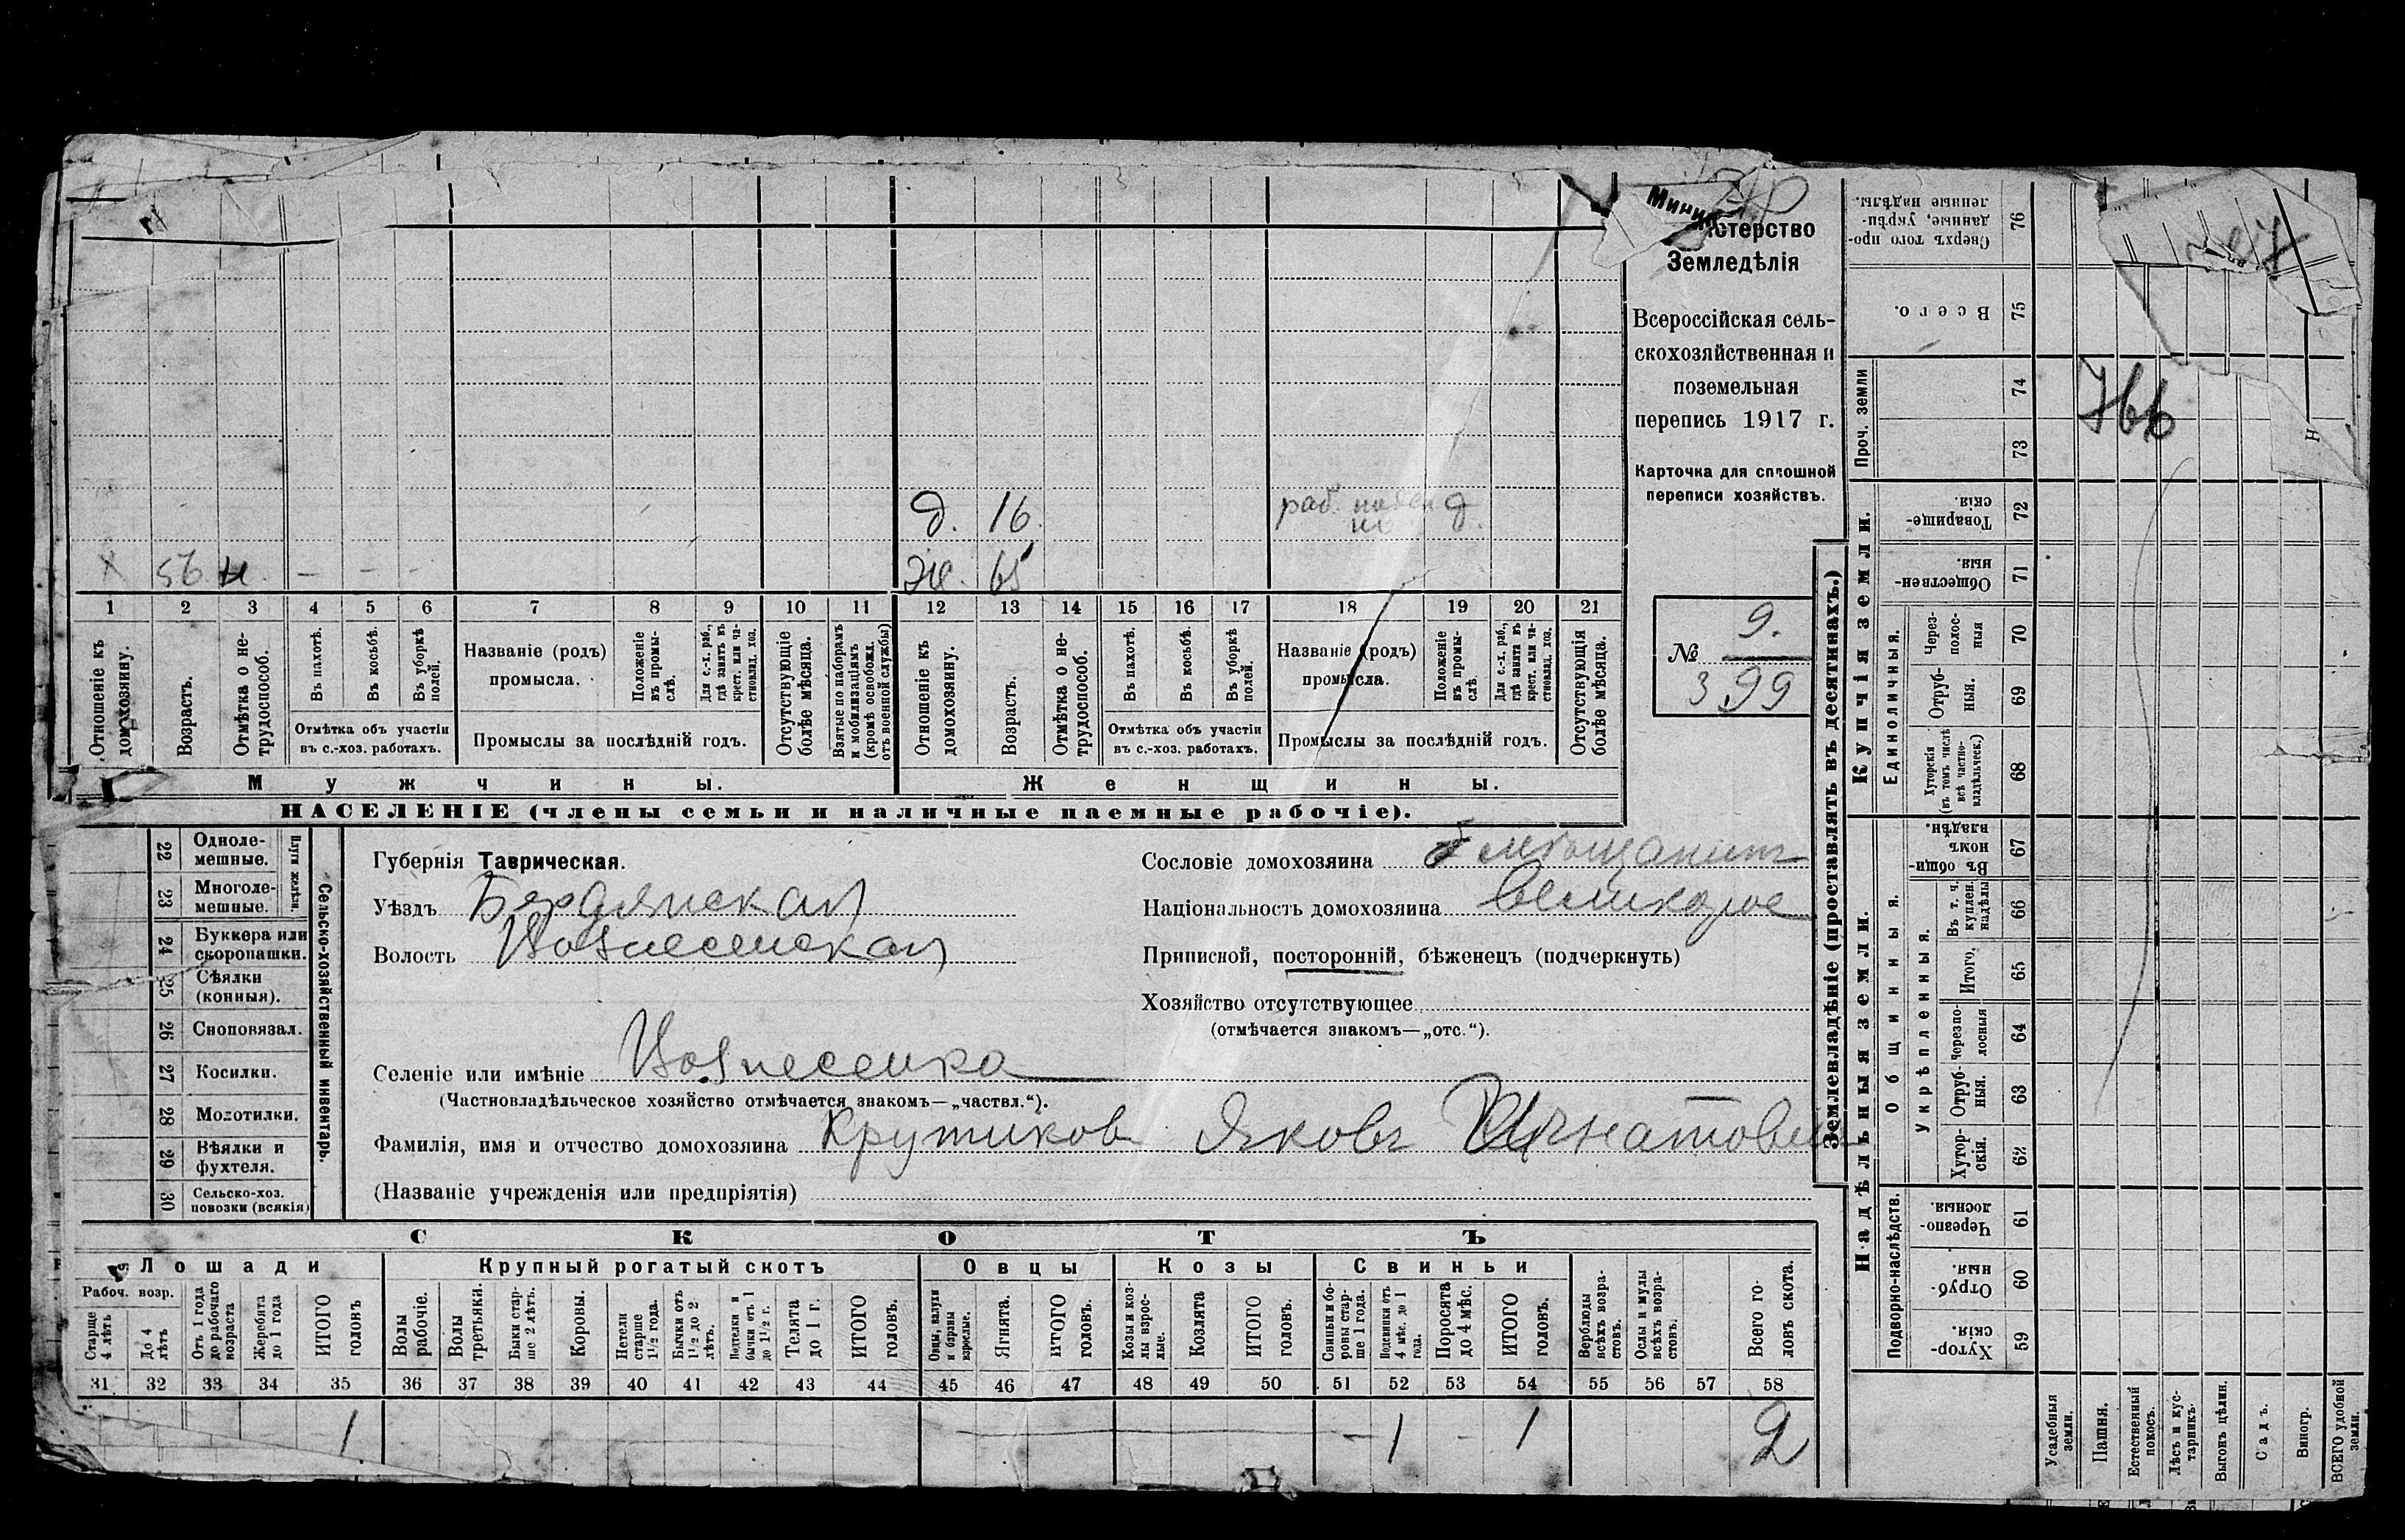 Министерство
Земледѣлія
Всероссійская сель-
скохозяйственная и
поземельная
перепись 1917 г.
Карточка для сплошной
переписи хозяйствъ.
№ 9.
399
д. 16. раб. д.
х 56 н. – – – Же. 65
1 2 3 4 5 6 7 8 9 10 11 12 13 14 15 16 17 18 19 20 21
Отношеніе къ домохозяину.
Возрастъ.
Отмѣтка о не-трудоспособ.
Въ пахотѣ.
Въ косьбѣ.
Въ уборкѣ полей.
Отмѣтка объ участіи
въ с.-хоз. работахъ.
Названіе (родъ)
промысла.
Положеніе въ промы-слѣ.
Для с.-х. раб., гдѣ занятъ въ крест. или ча-стновлад. хоз.
Промыслы за послѣдній годъ.
Отсутствующіе болѣе мѣсяца.
Взятые по наборамъ и мобилизаціямъ (кромѣ освобожд. отъ военной службы)
Отношеніе къ домохозяину.
Возрастъ.
Отмѣтка о не-трудоспособ.
Въ пахотѣ.
Въ косьбѣ.
Въ уборкѣ полей.
Отмѣтка объ участіи
въ с.-хоз. работахъ.
Названіе (родъ)
промысла.
Положеніе въ промы-слѣ.
Для с.-х. раб., гдѣ занята въ крест. или ча-стновлад. хоз.
Промыслы за послѣдній годъ.
Отсутствующія болѣе мѣсяца.
Мужчины.
Женщины.
НАСЕЛЕНІЕ (члены семьи и наличные наемные рабочіе).
22 Одноле-
мешные.
23 Многоле-
мешные.
24 Буккера или
скоропашки.
25 Сѣялки
(конныя).
26 Сноповязал.
27 Косилки.
28 Молотилки.
29 Вѣялки и
фухтеля.
30 Сельско-хоз.
повозки (всякія)
Сельско-хозяйственный инвентарь.
Губернія Таврическая.
Уѣздъ Бердянская
Волость Вознесенская
Селеніе или имѣніе Вознесенка
(Частновладѣльческое хозяйство отмѣчается знакомъ—„частвл.“).
Фамилія, имя и отчество домохозяина Крутиков Яковъ Игнатович
(Названіе учрежденія или предпріятія)
Сословіе домохозяина мѣщанинъ
Національность домохозяина великорос
Приписной, посторонній, бѣженецъ (подчеркнуть)
Хозяйство отсутствующее
(отмѣчается знакомъ—„отс.“).
СКОТЪ
Лошади
Крупный рогатый скотъ
Овцы
Козы
Свиньи
Рабоч. возр.
Старше 4 лѣтъ
До 4 лѣтъ
Отъ 1 года до рабочаго возраста
Жеребята до 1 года
ИТОГО головъ
Волы рабочіе.
Волы третьяки.
Быки стар-ше 2 лѣтъ.
Коровы.
Нетели старше 1½ года.
Бычки отъ 1½ до 2 лѣтъ.
Подтелки и бычки отъ 1 до 1½ г.
Телята до 1 г.
ИТОГО головъ.
Овцы, валухи и бараны взрослые.
Ягнята.
ИТОГО головъ.
Козы и коз-лы взрос-лые.
Козлята
ИТОГО головъ.
Свиньи и бо-ровы стар-ше 1 года.
Подсвинки отъ 4 мѣс. до 1 года.
Поросята до 4 мѣс.
ИТОГО головъ.
Верблюды всѣхъ возра-стовъ.
Ослы и мулы всѣхъ возра-стовъ.
Всего го-ловъ скота.
31 32 33 34 35 36 37 38 39 40 41 42 43 44 45 46 47 48 49 50 51 52 53 54 55 56 57 58
1 – 1 – 1 2
Землевладѣніе (проставлять въ десятинахъ.)
Купчія земли.
Надѣльныя земли.
Сверхъ того про-данные, укрѣп-ленные надѣлы. 76
Всего. 75
Проч. земли 74
73
Товарище-скія. 72
Обществен-ныя. 71
Единоличныя.
Через-полос-ныя 70
Отруб-ныя. 69
Хуторскія (въ томъ числѣ всѣ частно-владѣльческ.) 68
Общинныя.
Въ общи-номъ владѣн. 67
Укрѣпленныя.
Въ т. ч. куплен. надѣлы 66
Итого. 65
Черезпо-лосныя 64
Отруб-ныя. 63
Хутор-скія. 62
Подворно-наслѣдств.
Черезпо-лосныя. 61
Отруб-ныя. 60
Хутор-скія. 59
Усадебныя земли.
Пашня.
Естественный покосъ.
Лѣсъ и кус-тарникъ.
Выгонъ цѣлин.
Садъ.
Виногр.
ВСЕГО удобной земли.